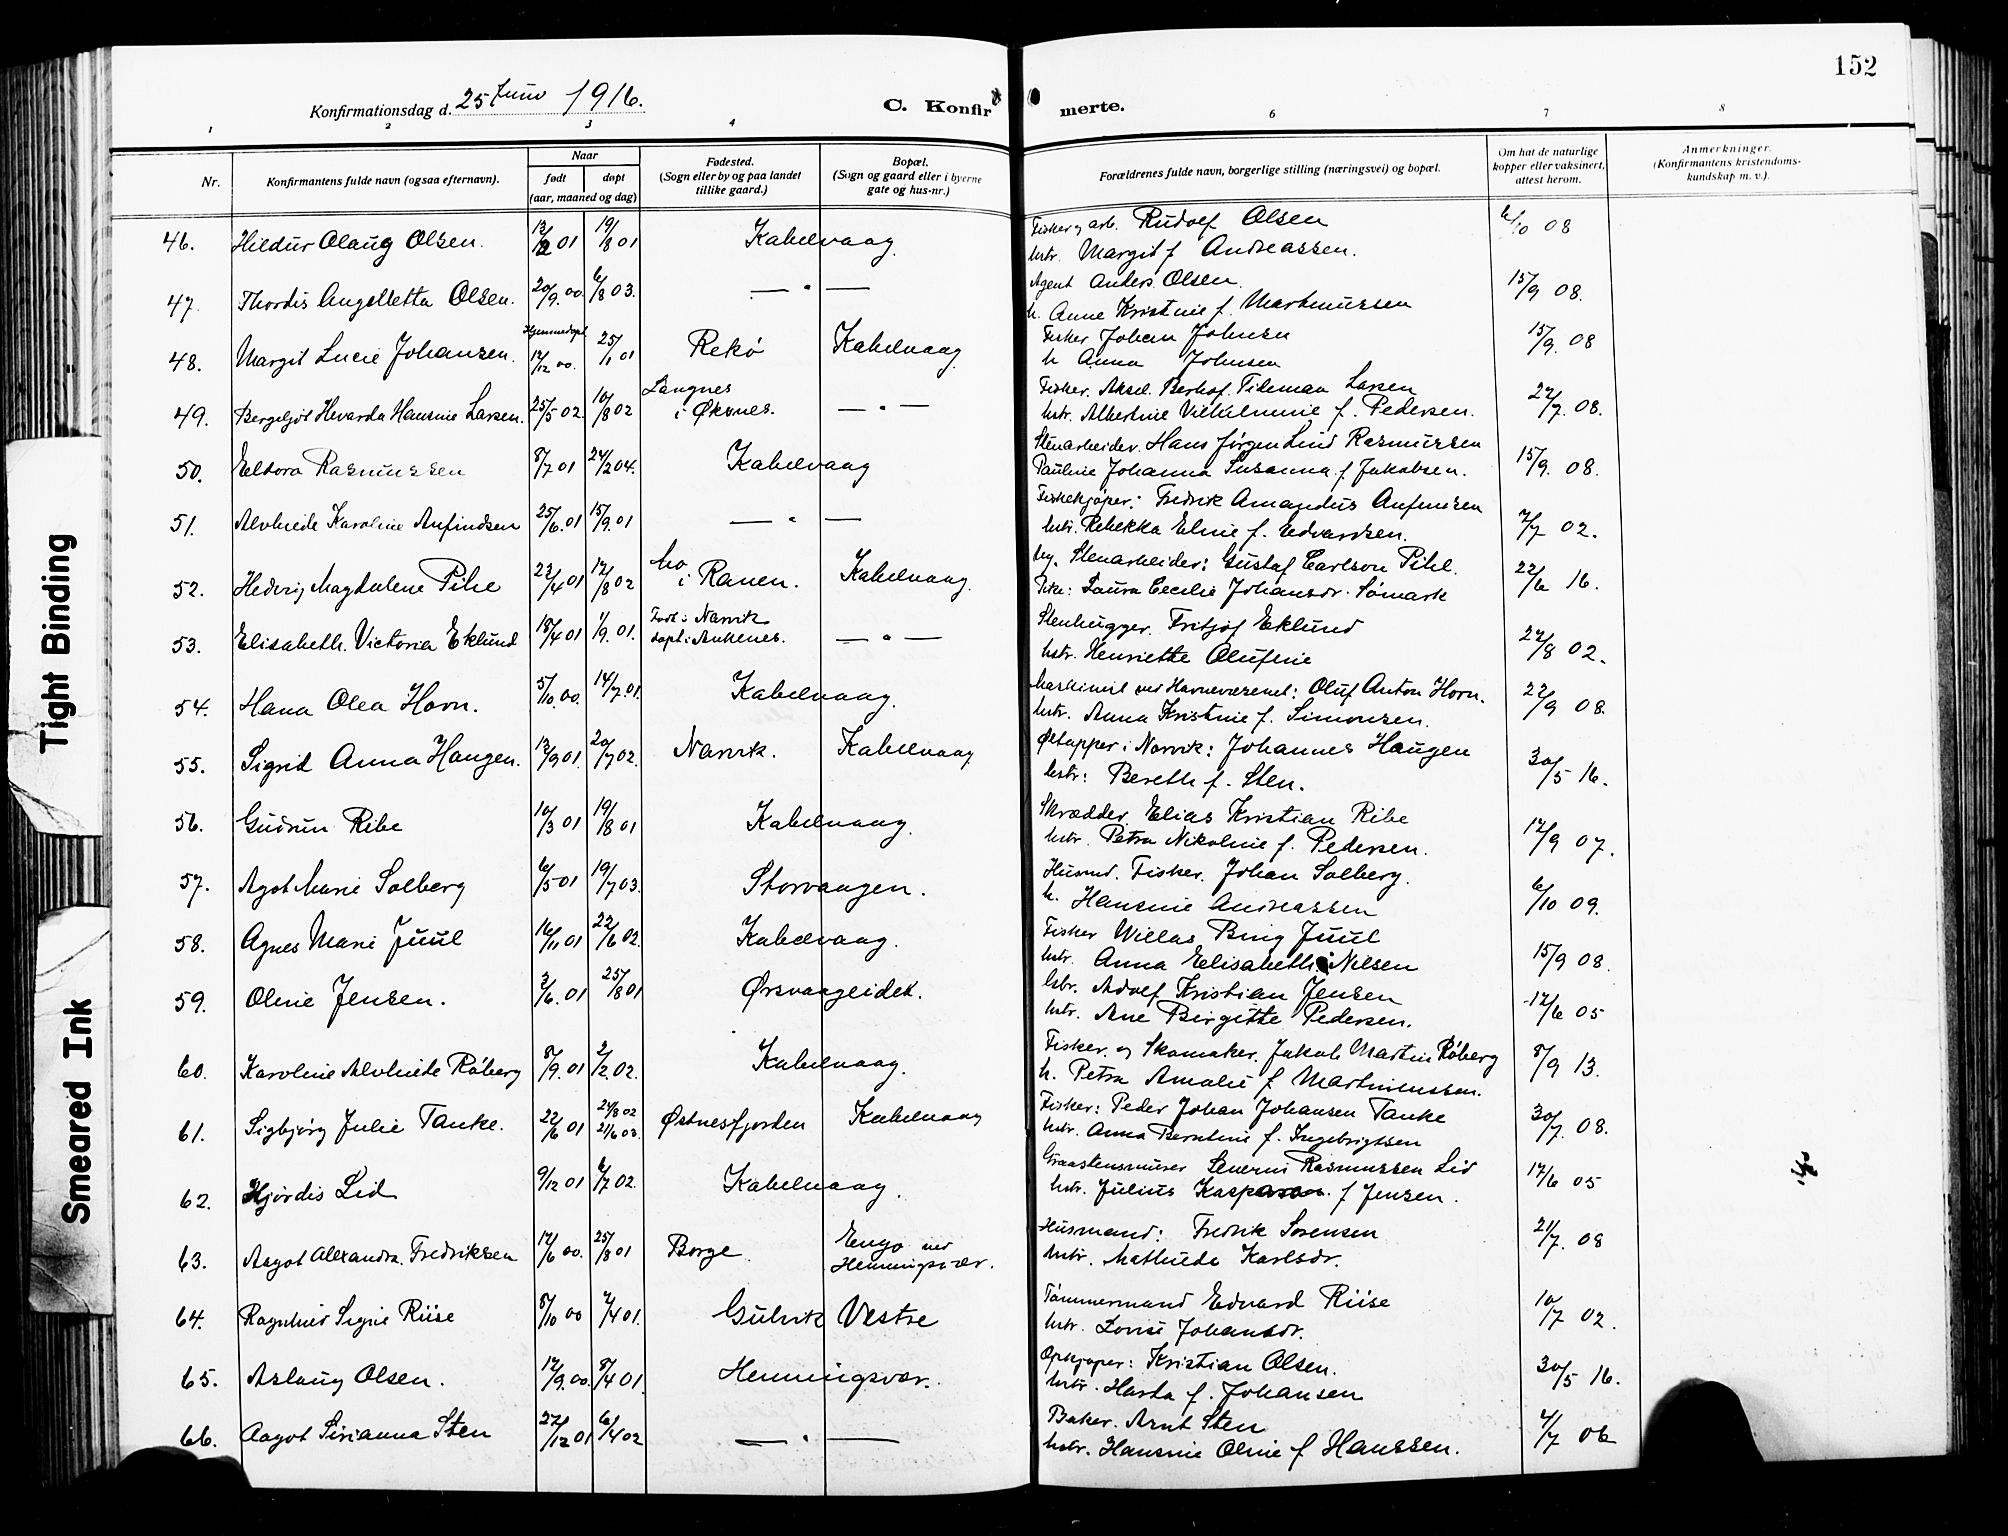 152
Konfirmationsdag d. 25 Juni 1916.
C. Konfirmerte.
1 2 3 4 6 7 8
Nr.
Konfirmantens fulde navn (ogsaa efternavn).
Naar
født døpt
(aar, maaned og dag)
Fødested.
(Sogn eller by og paa landet
tillike gaard.)
Bopæl.
(Sogn og gaard eller i byerne
gate og hus-nr.)
Forældrenes fulde navn, borgerlige stilling (næringsvei) og bopæl.
Om hat de naturlige
kopper eller vaksinert,
attest herom.
Anmerkninger.
(Konfirmantens kristendoms-
kundskap m. v.).
46. Hildur Olaug Olsen. 19/8 01 Kabelvaag. Fisker og arb. Rudolf Olsen 6/10 08
hstr. Margit f. Andreassen.
47. Thordis Angelletta Olsen. 20/9. 00. 6/8 03. — " — Agent Anders Olsen. 15/9 08.
h. Anne Kristine f. Martinussen
Hjemmedøpt
48. Margit Lucie Johansen. 17/12 00. 25/1 01 Rekø Kabelvaag Fisker Johan Johnsen 15/9. 08
h Anna Johnsen
49. Bergeljot Hevarda Hansine Larsen. 25/5 02. 10/8 02 Langnes i Øksnes. — " — Fisker. Aksel. Berhof. Tideman Larsen 22/7. 08.
hstr. Albertine Vilhelmine f. Pedersen.
50. Eldora Rasmussen 8/7 01 24/2 04. Kabelvaag Stenarbeider. Hans Jørgen Lind Rasmussen 15/9. 08.
Pauline Johanna Susanna f. Jakobsen.
51. Alvhilde Karoline Anfindsen 25/6. 01 15/9. 01 — " — Fiskekjøper: Fredrik Amandus Anfinsen 7/7 02.
hstr. Rebekka Eline f. Edvardsen.
52. Hedvig Magdalene Pihl 23/4 01 17/8 02 Mo i Ranen. Kabelvaag. Ug. Stenarbeider: Gustaf Carlson Pihl. 22/6 16.
Pike: Laura Cecilie Johansdr. Sømark
53. Elisabeth. Victoria Eklund 18/4 01 1/9. 01. Født i Narvik døpt i Ankenes. — " — Stenhugger. Fritjof Eklund 27/8 02.
hstr. Henriette Olufine
54. Hana Olea Horn. 5/10. 00. 14/7. 01. Kabelvaag. Maskinist ved Havnevæsenet: Oluf Anton Horn. 22/9 08.
hstr. Anna Kristine f. Simonsen.
55. Sigrid Anna Haugen. 13/9 01. 20/7 02. Narvik. Kabelvaag Øltapper i Narvik: Johannes Haugen 30/5 16.
hstr: Bereth f. Sten.
56. Gudrun Ribe 10/3 01 19/8 01 Kabelvaag. Skrædder. Elias Kristian Ribe 17/9 07.
hstr. Petra Nikoline f. Pedersen.
57. Agot Marie Solberg 6/5 01 19/7 03. Storvaagen. Husmd. Fisker. Johan Solberg. 6/10 09.
h. Hansine Andreassen
58. Agnes Marie Juul 16/11 01 22/6 02. Kabelvaag. Fisker Willas Bing Juul 15/9 08.
hstr. Anna Elisabeth Nilsen
59. Oline Jensen. 3/6. 01 25/8 01 Ørsvaageidet. Gbr. Adolf Kristian Jensen 17/6 05
hstr. Ane Birgitte Pedersen.
60. Karoline Alvhilde Råberg 8/9. 01 2/2. 02. Kabelvaag. Fisker. og Skomaker. Jakob Martin Råberg 8/9 13.
h. Petra Amalie f. Martinussen.
61. Sigbjørg Julie Tanke. 22/6 01 24/8 02 21/6 03. Østnesfjorden Kabelvaag Fisker: Peder Johan Johansen Tanke 30/7. 08.
hstr. Anna Berntine f. Ingebrigtsen
62. Hjørdis Lid 9/12 01 6/7 02. Kabelvaag. Graastensmurer Severin Rasmussen Lid 17/6 05
hstr. Julius f Jensen.
63. Aagot Alexandra. Fredriksen 17/6 00. 25/8 01 Borge Engø ved Henningsvær. Husmand: Fredrik Sørensen 21/7. 08
hstr. Mathilde Karlsdr.
64. Ragnhild Signe Riise 8/10 00 7/4 01. Gulvik Vestre Tømmermand Edvard Riise 10/7 02.
hstr. Lovise Johansdr.
65. Aslaug Olsen. 17/9. 00. 8/4 01. Henningsvær. Opkjøper: Kristian Olsen. 30/5 16.
hstr. Harda f. Johansen
66. Aagot Sirianna Sten 27/12 01 6/4 02 — " — Baker. Arnt Sten 4/7 06
hstr. Hansine Oline f Hanssen.
Tight Binding
Smeared Ink